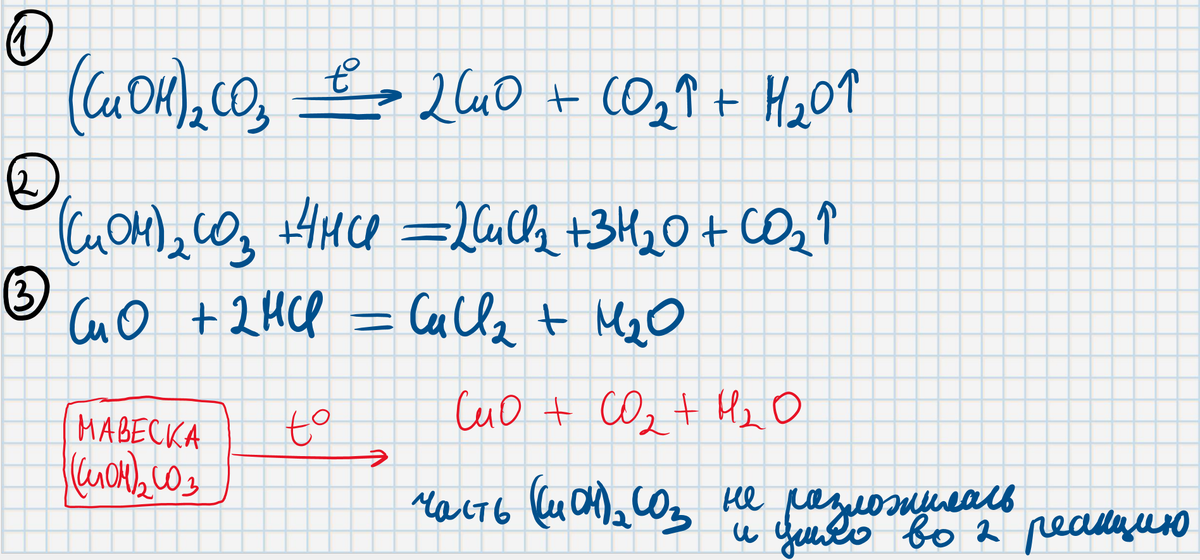 1
(CuOH)₂CO₃ t° → 2CuO + CO₂↑ + H₂O↑
2
(CuOH)₂CO₃ + 4HCl = 2CuCl₂ + 3H₂O + CO₂↑
3
CuO + 2HCl = CuCl₂ + H₂O
НАВЕСКА
(CuOH)₂CO₃
t° →
CuO + CO₂ + H₂O
часть (CuOH)₂CO₃ не разложилась
и ушло во 2 реакцию